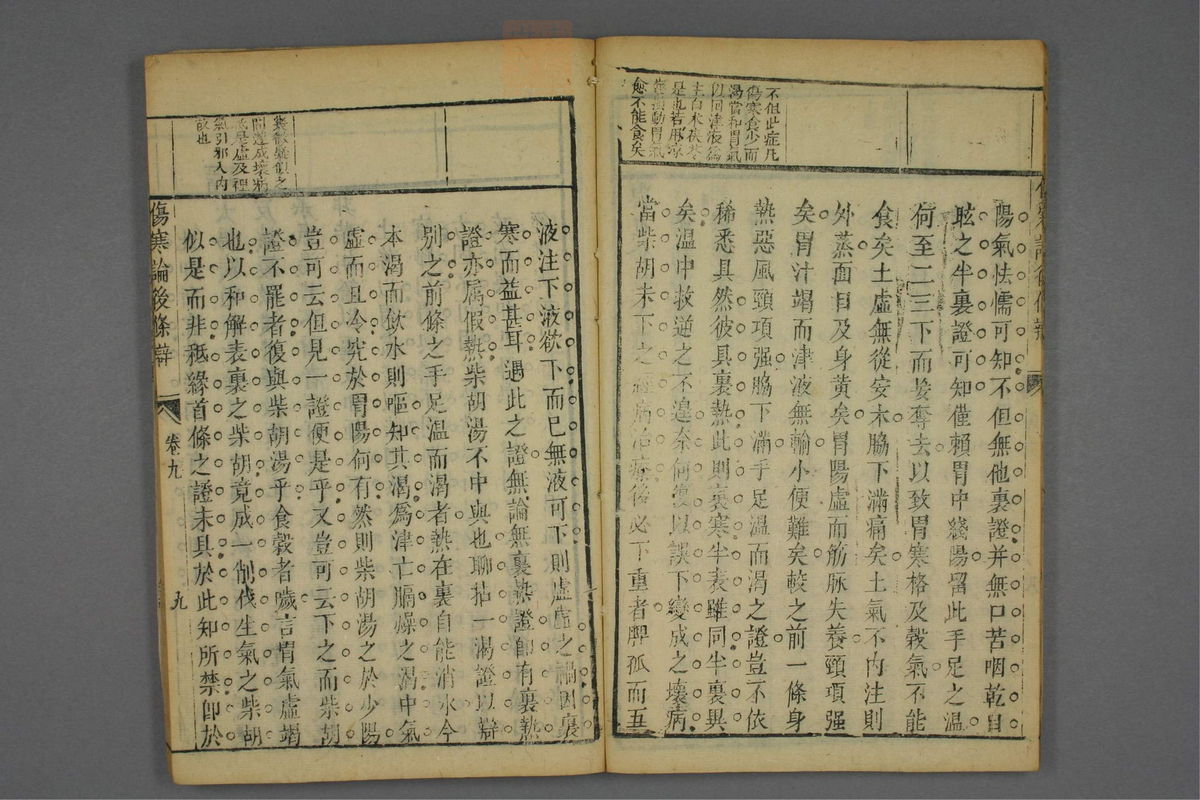 不但此症凡
傷寒食少而
渴當和胃氣
以回津液爲
主白朮茯苓
是也若用凉
藥損動胃氣
愈不能食矣
陽氣怯懦可知不但無他裏證并無口苦咽乾目
眩之半裏證可知僅賴胃中綫陽留此手足之温
何至二三下而妄奪去以致胃寒格及穀氣不能
食矣土虛無從安木脇下滿痛矣土氣不内注則
外蒸面目及身黄矣胃陽虛而筋脉失養頸項强
矣胃汁竭而津液無輸小便難矣較之前一條身
熱惡風頸項强脇下滿手足温而渴之證豈不依
稀悉具然彼具裏熱此則裏寒半表雖同半裏異
矣温中救逆之不遑奈何復以誤下變成之壞病
當柴胡未下之治療後必下重者脾孤而五
之
間遂成壞病
氣引邪入内
故也
液注下液欲下而已無液可下則虛虛之禍因裏
寒而益甚耳遇此之證無論無裏熱證卽有裏熱
證亦属假熱柴胡湯不中與也聊拈一渴證以辯
别之前條之手足温而渴者熱在裏自能消水今
本渴而飲水則嘔知其渴爲津亡膈燥之渴中氣
虛而且冷究於胃陽何有然則柴胡湯之於少陽
豈可云但見一證便是乎又豈可云下之而柴胡
證不罷者復與柴胡湯乎食穀者噦言胃氣虛竭
也以和解表裏之柴胡竟成一削伐生氣之柴胡
似是而非秪緣首條之證未具於此知所禁卽於
傷寒論後條辯
卷九
九